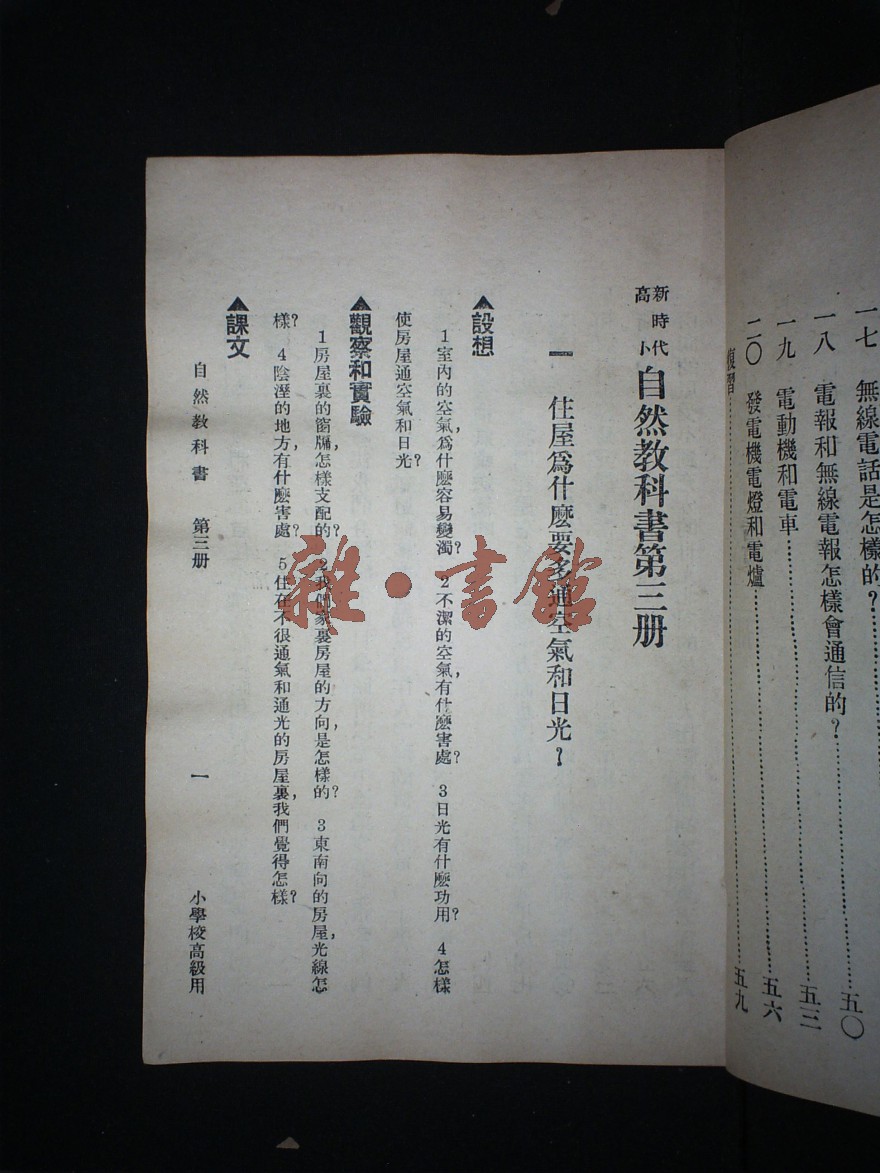 一七　無線電話是怎樣的？
一八　電報和無線電報怎樣會通信的？……五〇
一九　電動機和電車……五三
二〇　發電機電燈和電爐……五六
復習……五九
新時代
高小
自然教科書第三册
一　住屋爲什麽要多通空氣和日光？
▲設想
1室內的空氣，爲什麽容易變濁？　2不潔的空氣有什麽害處？　3日光有什麽功用？　4怎樣
使房屋通空氣和日光？
▲觀察和實驗
1房屋裏的窗牖，怎樣支配的？　2我們家裏房屋的方向，是怎樣的？　3東南向的房屋，光線怎
樣？　4陰溼的地方，有什麽害處？　5住在不很通氣和通光的房屋裏，我們覺得怎樣？
▲課文
自然教科書　第三册　一　小學校高級用
雜·書館